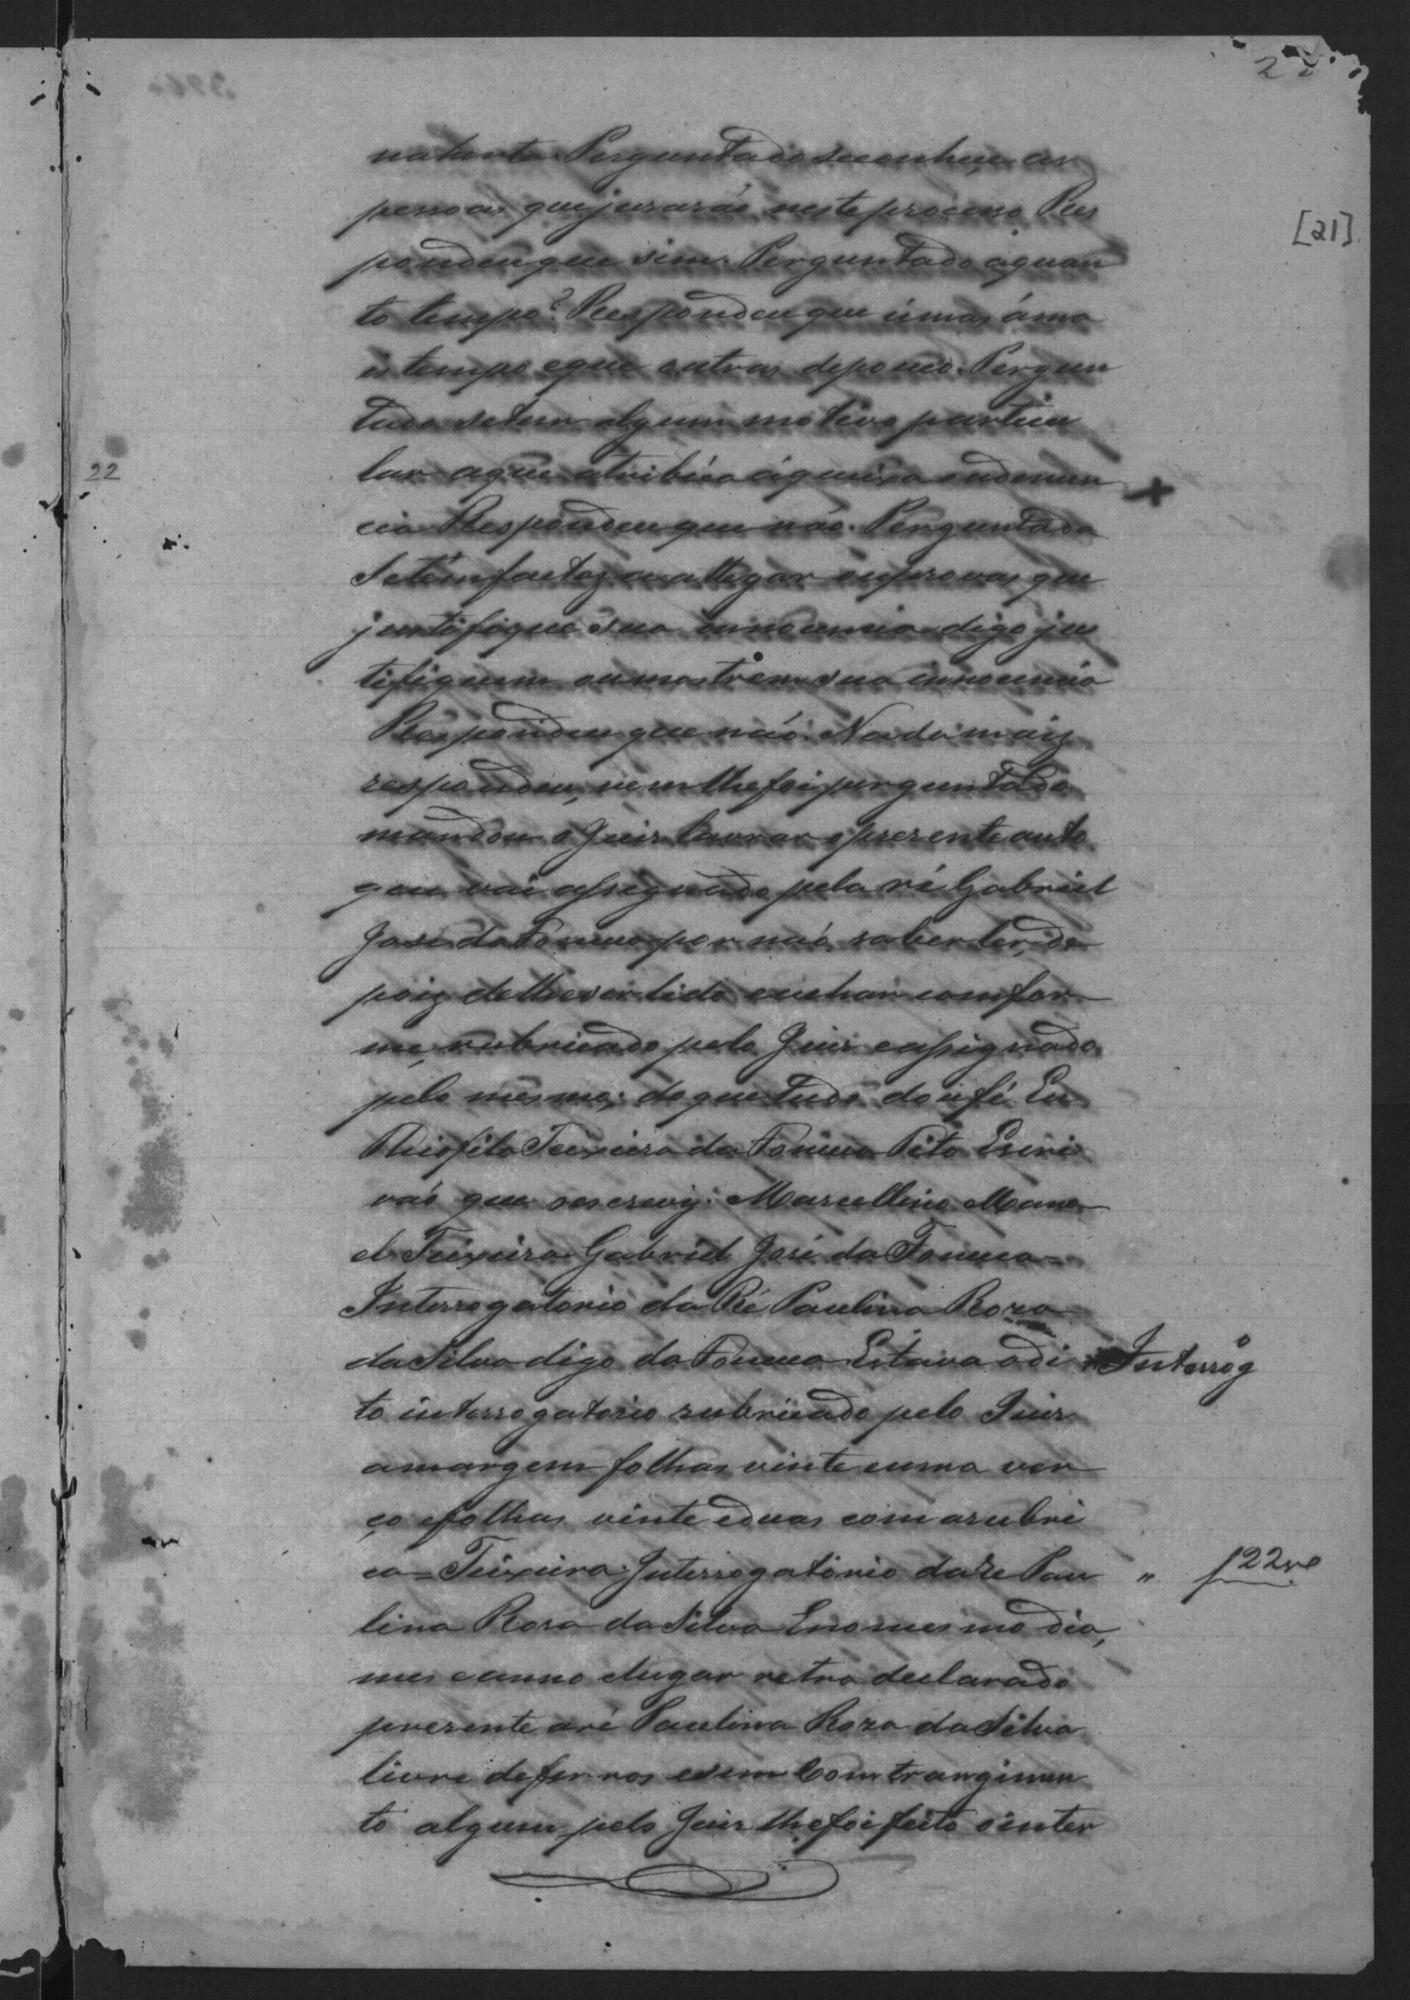 22
[21]
na horta Perguntado se conhece as
pessoas que jurarão neste processo Res
pondeu que sim. Perguntado a quan
to tempo? Respondeu que umas á ma
is tempo e que outras de pouco. Pergun
tado se tem algum motivo particu
lar a que atribúa á queixa ou denun
cia Respondeu que não. Perguntada
Se têm factoz a allegar ou provas que
justifique sua innocencia digo jus
tifiquem ou mostrem sua innocencia
Respondeu que não. Nada maiz
respondeu, nem lhe foi perguntado
mandou o Juis lavrar o presente auto
que vai assignado pela ré Gabriel
José da Fonseca por não saber ler, de
poiz de lhe ser lido e achar comfor
me, rubricado pelo Juis e assignado
pelo mesmo; do que tudo dou fé. Eu
Theofilo Teixeira da Fonseca Pito Escri
vaõ que os escrevy. Marcellino Mano
el Teixeira Gabriel José da Fonseca =
Interrogatorio da Ré Paulina Roza
da Silva digo da Fonseca Estava o di
Interrogº
to interrogatorio rubricado pelo Juis
a margem folhas vinte e uma ver
ço e folhas vinte e duas com a rubri
ca = Teixeira. Interrogatório da re Pau
" f 22 vº
lina Rosa da Silva E no mesmo dia,
mes e anno e lugar retro declarado
presente a ré Paulina Roza da Silva
livre de ferros e sem Comtrangimen
to algum pelo Juis lhe foi feito o inter
22